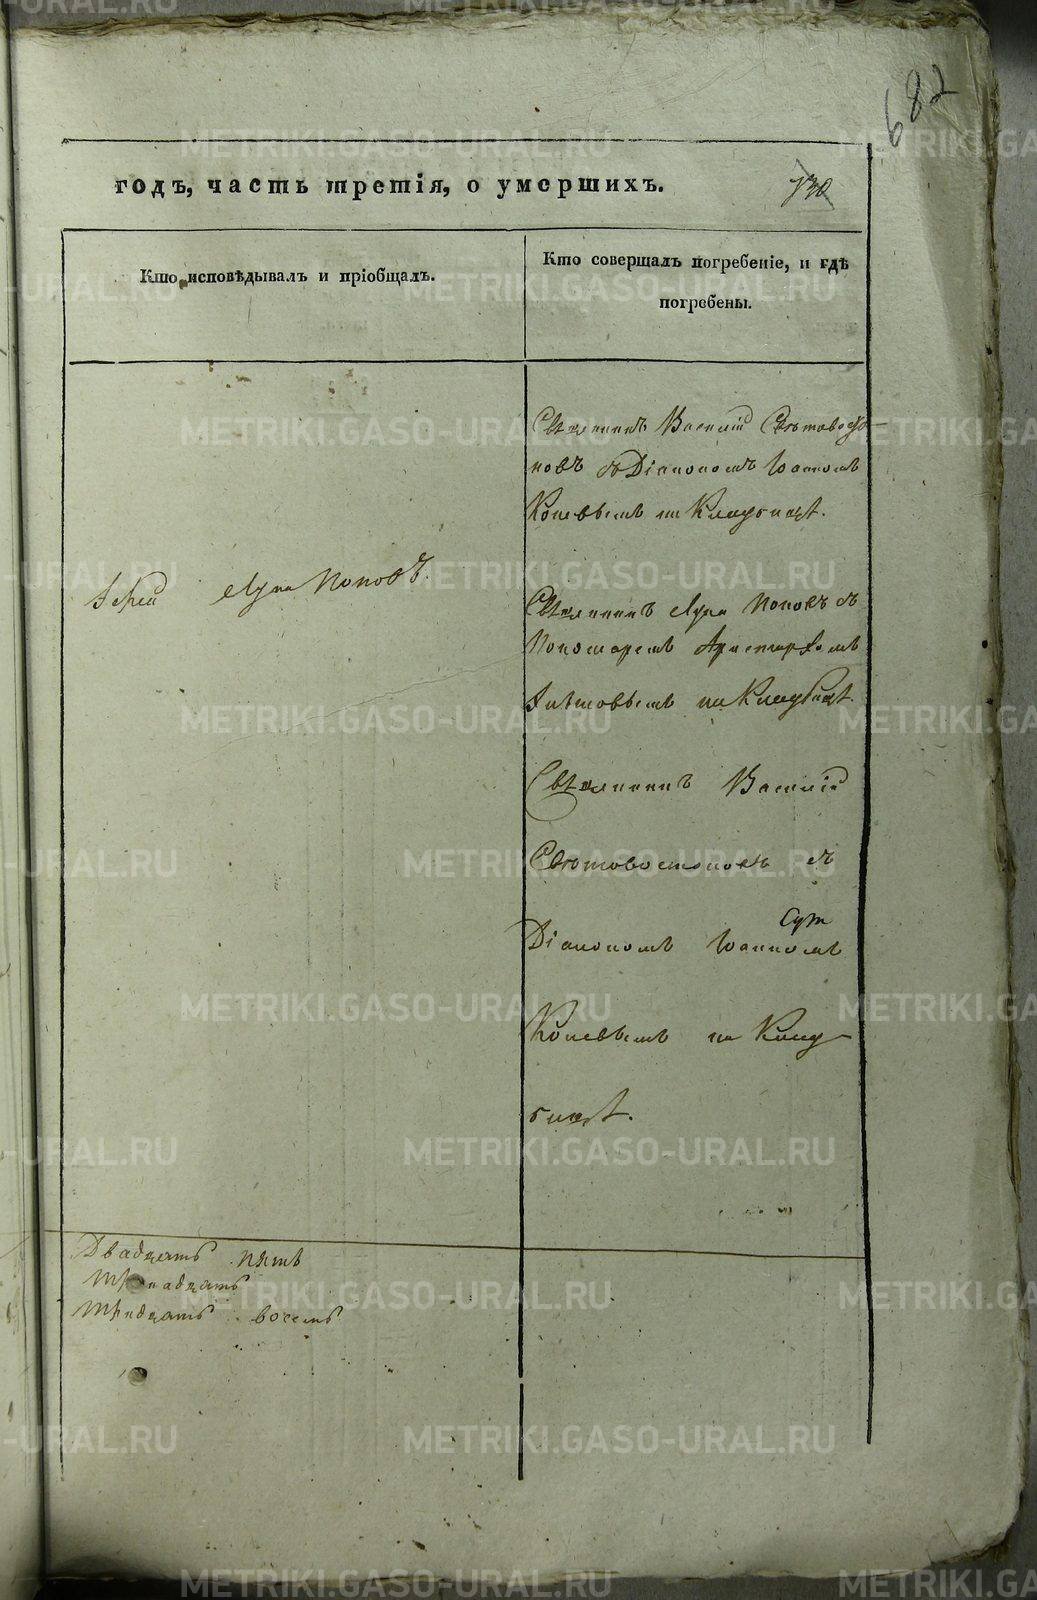 682
годъ, часть третія, о умершихъ.
130
Кто исповѣдывалъ и пріобщалъ.
Кто совершалъ погребеніе, и гдѣ
погребены.
Священникъ Василій Святовосто-
ковъ съ Діакономъ Іоанномъ
на Кладбищѣ.
Іерей Лука Поповъ.
Священникъ Лука Поповъ съ
Пономаремъ Аристархомъ
на Кладбищѣ.
Священникъ Василій
Святовостоковъ съ
Діакономъ Іоанномъ
на Клад-
бищѣ.
Двадцать пять
Тринадцать
Тридцать восемь
METRIKI.GASO-URAL.RU